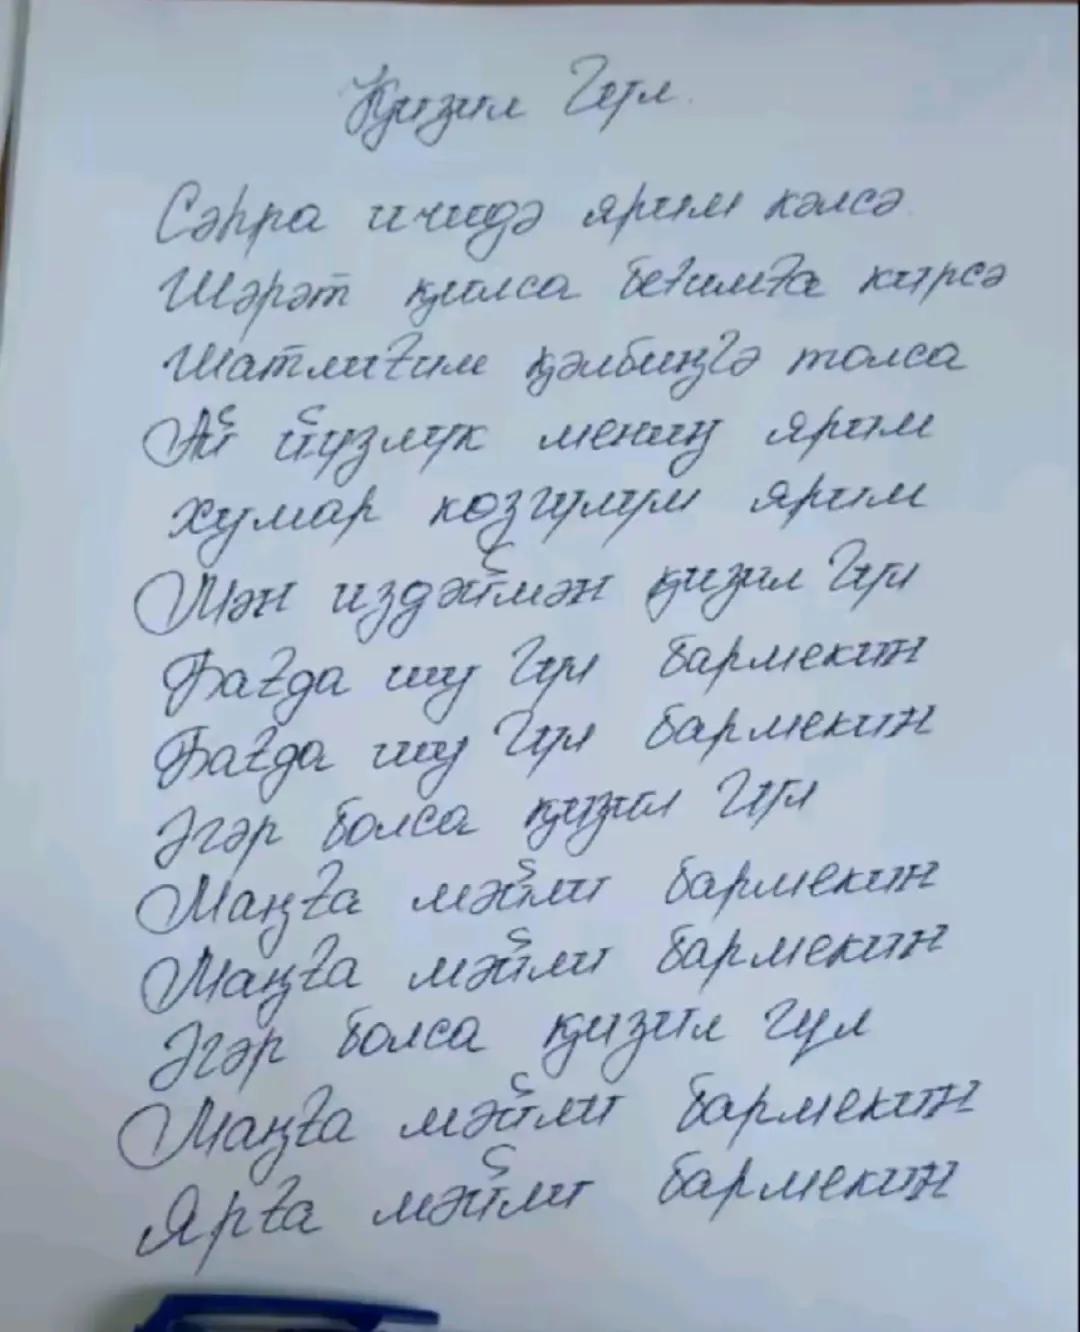 Қизил Гүл.
Сәһра ичидә ярим кәлсә
Шәрәт қилса беғимға кирсә
Шатлиғим қәлбиңгә толса
Ай йүзлүк мениң ярим
Хумар көзгүлүм ярим
Мән издәймән қизил гүл
Бағда шу гүл бармекин
Бағда шу гүл бармекин
Әгәр болса қизил гүл
Маңға мәйли бармекин
Маңға мәйли бармекин
Әгәр болса қизил гүл
Маңға мәйли бармекин
Ярға мәйли бармекин